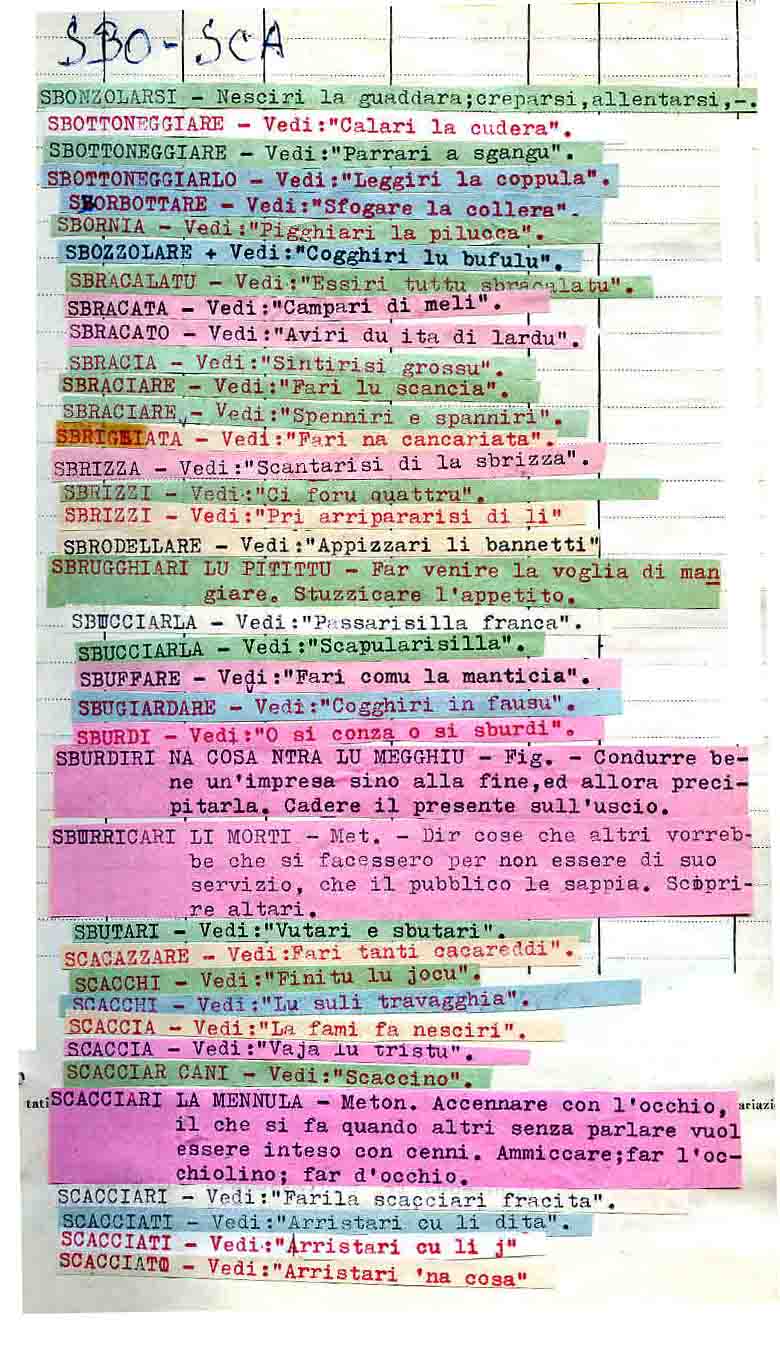 SBO-SCA
SBONZOLARSI - Nesciri la guaddara;creparsi,allentarsi,-.
SBOTTONEGGIARE - Vedi:"Calari la cudera".
SBOTTONEGGIARE - Vedi:"Parrari a sgangu".
SBOTTONEGGIARLO - Vedi:"Leggiri la coppula".
SBORBOTTARE - Vedi:"Sfogare la collera".
SBORNIA - Vedi:"Pigghiari la pilucca".
SBOZZOLARE + Vedi:"Cogghiri lu bufulu".
SBRACALATU - Vedi:"Essiri tuttu sbracalatu".
SBRACATA - Vedi:"Campari di meli".
SBRACATO - Vedi:"Aviri du ita di lardu".
SBRACIA - Vedi:"Sintirisi grossu".
SBRACIARE - Vedi:"Fari lu scancia".
SBRACIARE - Vedi:"Spenniri e spanniri".
SBRIGLIATA - Vedi:"Fari na cancariata".
SBRIZZA - Vedi:"Scantarisi di la sbrizza".
SBRIZZI - Vedi:"Ci foru quattru".
SBRIZZI - Vedi:"Pri arripararisi di li"
SBRODELLARE - Vedi:"Appizzari li bannetti"
SBRUGGHIARI LU PITITTU - Far venire la voglia di man
giare. Stuzzicare l'appetito.
SBUCCIARLA - Vedi:"Passarisilla franca".
SBUCCIARLA - Vedi:"Scapularisilla".
SBUFFARE - Vedi:"Fari comu la manticia".
SBUGIARDARE - Vedi:"Cogghiri in fausu".
SBURDI - Vedi:"O si conza o si sburdi".
SBURDIRI NA COSA NTRA LU MEGGHIU - Fig. - Condurre be-
ne un'impresa sino alla fine,ed allora preci-
pitarla. Cadere il presente sull'uscio.
SBURRICARI LI MORTI - Met. - Dir cose che altri vorreb-
be che si facessero per non essere di suo
servizio, che il pubblico le sappia. Scopri-
re altari.
SBUTARI - Vedi:"Vutari e sbutari".
SCACAZZARE - Vedi:Fari tanti cacareddi".
SCACCHI - Vedi:"Finitu lu jocu".
SCACCHI - Vedi:"Lu suli travagghia".
SCACCIA - Vedi:"La fami fa nesciri".
SCACCIA - Vedi:"Vaja lu tristu".
SCACCIAR CANI - Vedi:"Scaccino".
tati SCACCIARI LA MENNULA - Meton. Accennare con l'occhio, ariazi
il che si fa quando altri senza parlare vuol
essere inteso con cenni. Ammiccare;far l'oc-
chiolino; far d'occhio.
SCACCIARI - Vedi:"Farila scacciari fracita".
SCACCIATI - Vedi:"Arristari cu li dita".
SCACCIATI - Vedi:"Arristari cu li j"
SCACCIATO - Vedi:"Arristari 'na cosa"